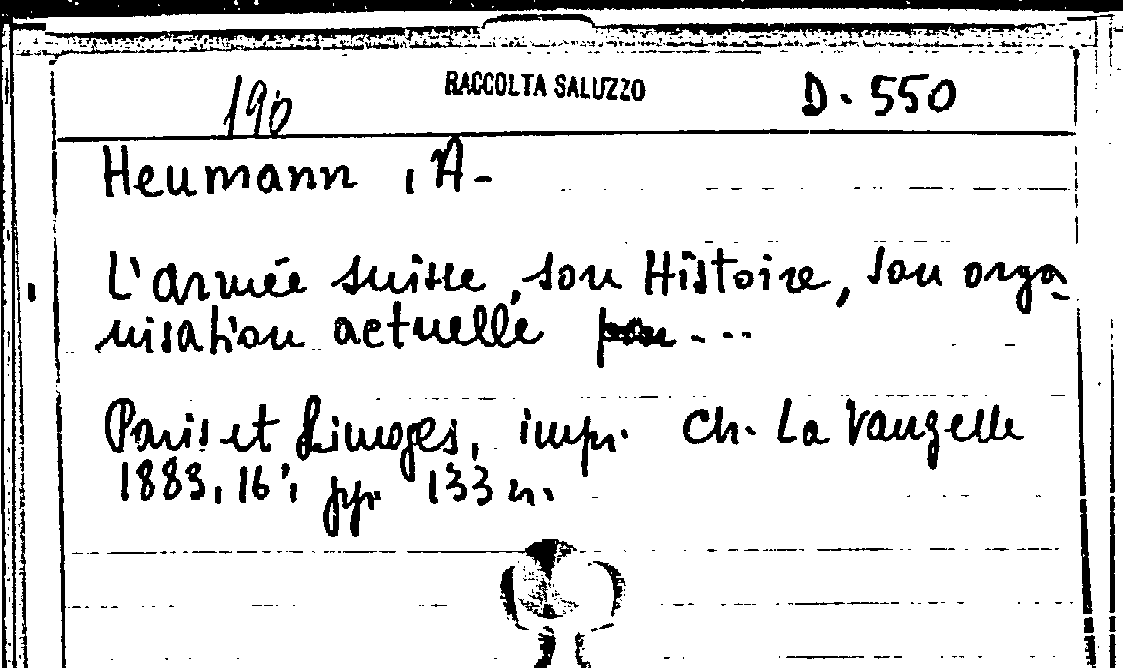 190 RACCOLTA SALUZZO D. 550
Heumann, A-
L'armée suisse, son Histoire, son orga-
nisation actuelle ...
Paris et Limoges, impr. Ch. La Vauzelle
1883, 16°, pp. 133 n.